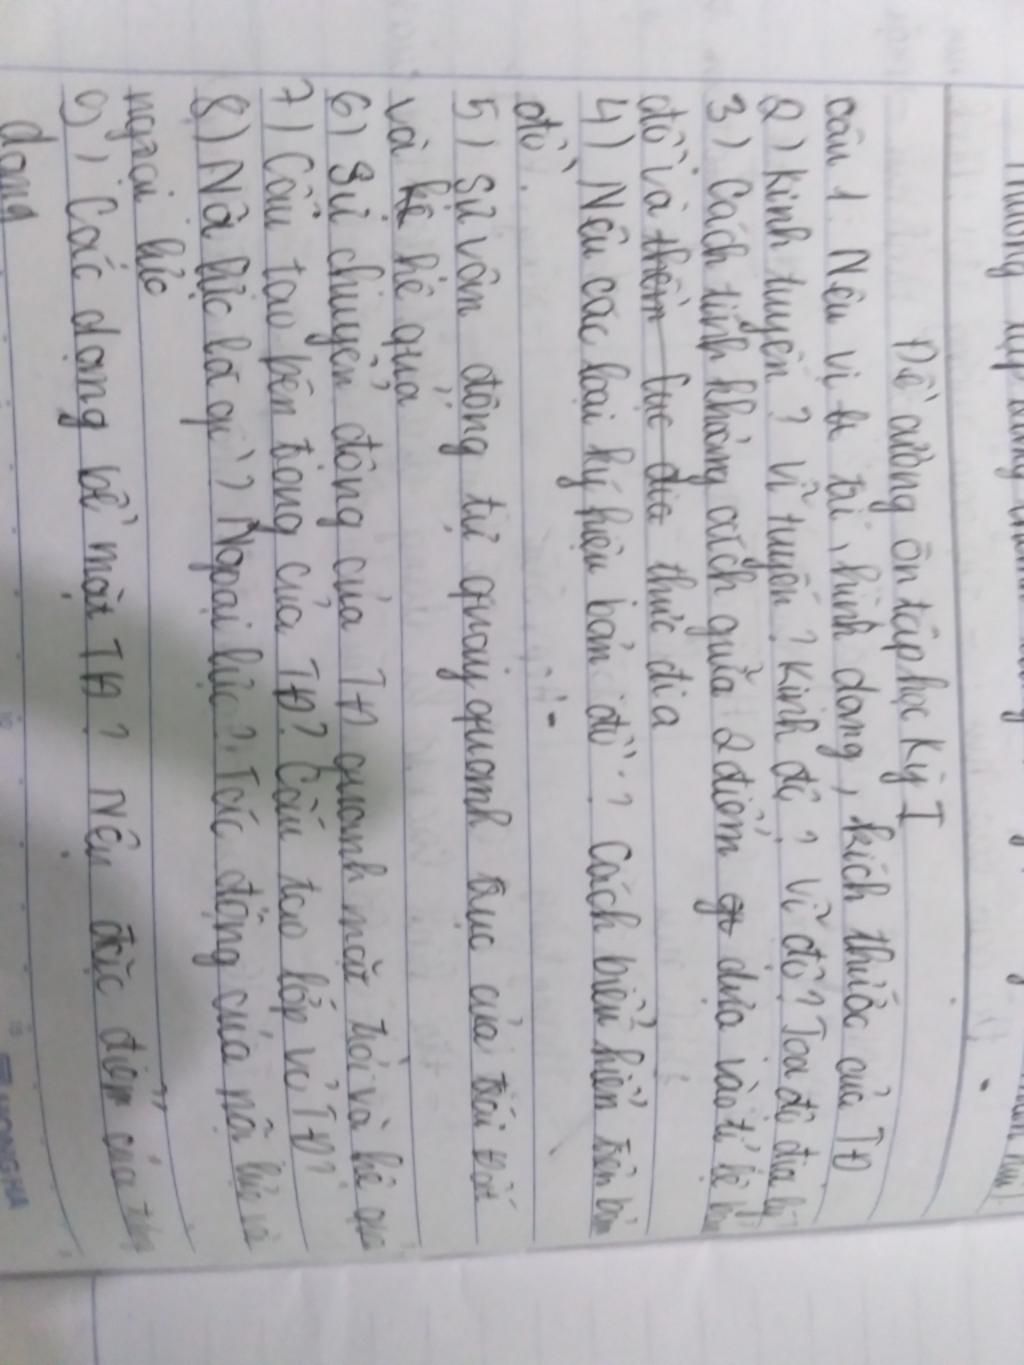 Đề cương ôn tập học Kỳ I
câu 1. Nêu vị trí, hình dạng, kích thước của TĐ
2) Kinh tuyến? Vĩ tuyến? Kinh độ? Vĩ độ? Toạ độ địa lý
3) Cách tính khoảng cách giữa 2 điểm dựa vào tỉ lệ bản
đồ và thực địa
4) Nêu các loại ký hiệu bản đồ? Cách biểu hiện trên bản
đồ.
5) Sự vận động tự quay quanh trục của trái đất
và hệ quả
6) Sự chuyển động của TĐ quanh mặt trời và hệ quả
7) Cấu tạo bên trong của TĐ? Cấu tạo lớp vỏ TĐ?
8) Nội lực là gì? Ngoại lực? Tác động của nội lực và
ngoại lực
9) Các dạng bề mặt TĐ? Nêu đặc điểm của từng
dạng
HONG HA